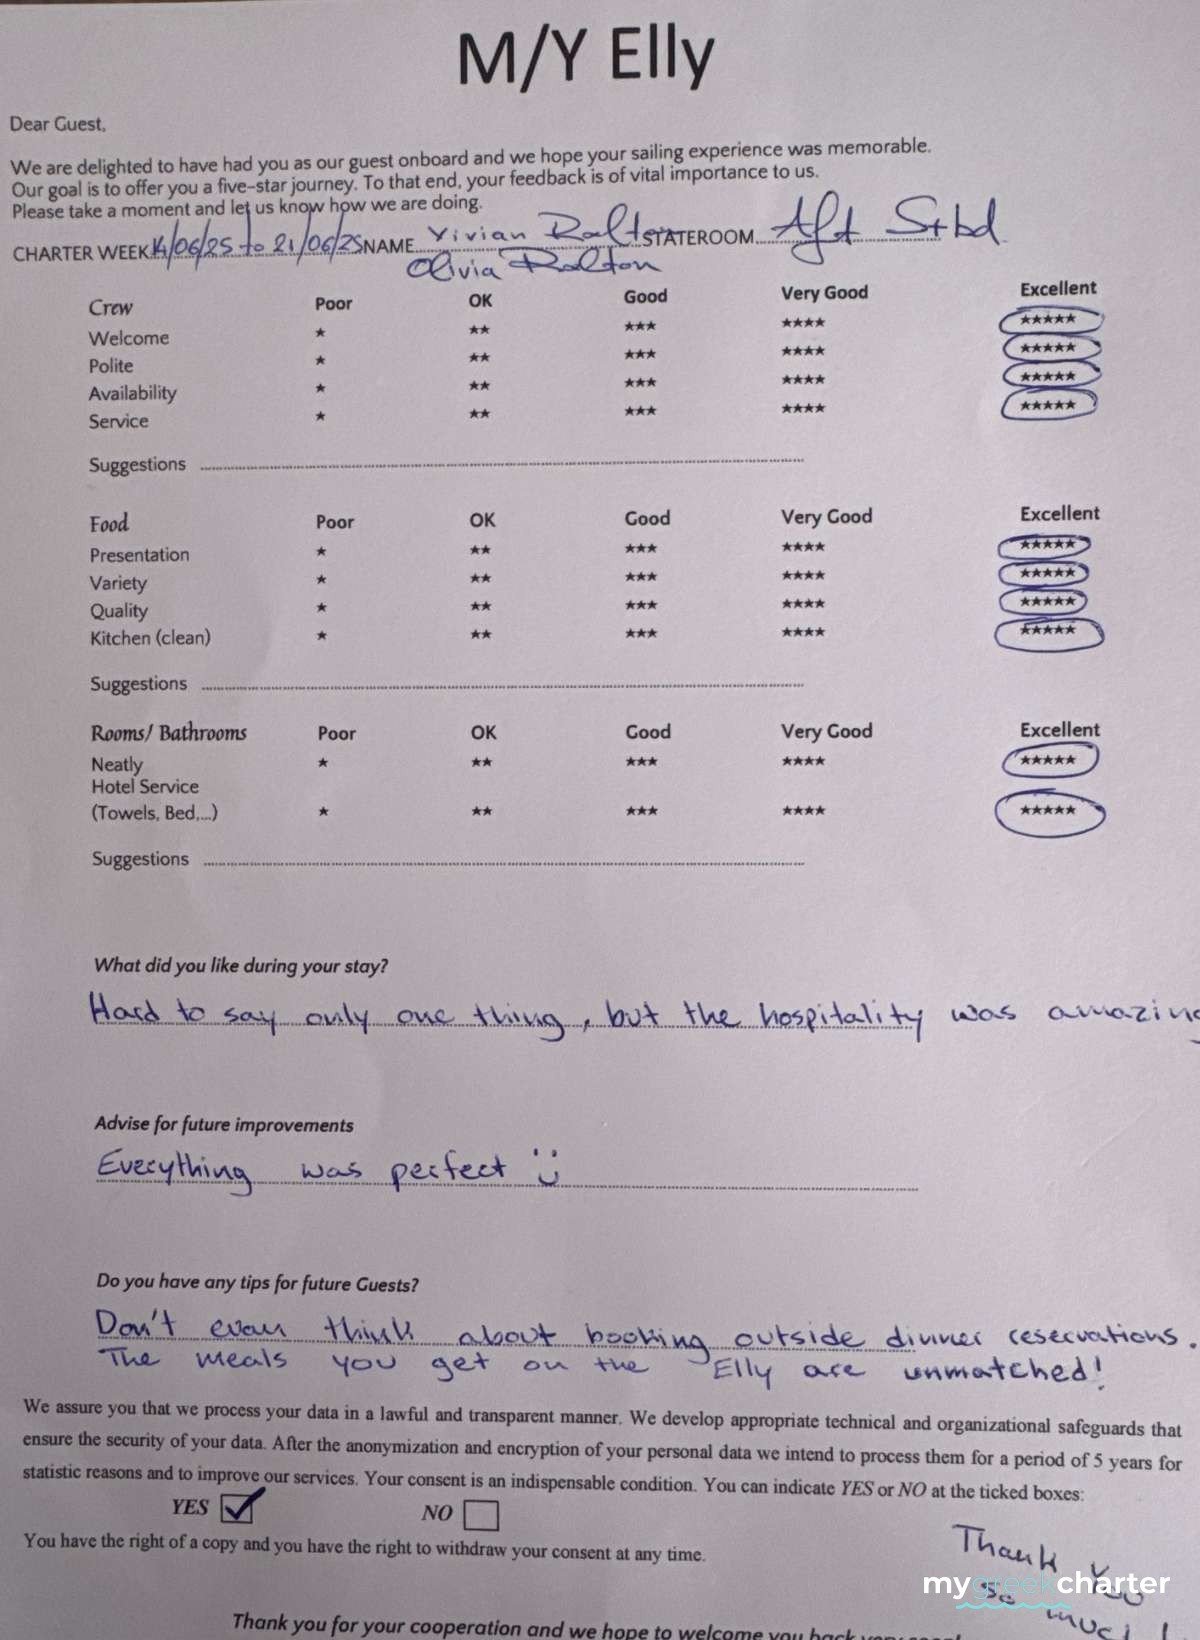 M/Y Elly
Dear Guest,
We are delighted to have had you as our guest onboard and we hope your sailing experience was memorable.
Our goal is to offer you a five-star journey. To that end, your feedback is of vital importance to us.
Please take a moment and let us know how we are doing.
CHARTER WEEK 14/06/25 to 21/06/25 NAME Vivian Ralton STATEROOM Aft Stbd
Olivia Ralton
Crew Poor OK Good Very Good Excellent
Welcome ★ ★★ ★★★ ★★★★ ★★★★★
Polite ★ ★★ ★★★ ★★★★ ★★★★★
Availability ★ ★★ ★★★ ★★★★ ★★★★★
Service ★ ★★ ★★★ ★★★★ ★★★★★
Suggestions
Food Poor OK Good Very Good Excellent
Presentation ★ ★★ ★★★ ★★★★ ★★★★★
Variety ★ ★★ ★★★ ★★★★ ★★★★★
Quality ★ ★★ ★★★ ★★★★ ★★★★★
Kitchen (clean) ★ ★★ ★★★ ★★★★ ★★★★★
Suggestions
Rooms/ Bathrooms Poor OK Good Very Good Excellent
Neatly ★ ★★ ★★★ ★★★★ ★★★★★
Hotel Service
(Towels, Bed,...) ★ ★★ ★★★ ★★★★ ★★★★★
Suggestions
What did you like during your stay?
Hard to say only one thing, but the hospitality was amazing
Advise for future improvements
Everything was perfect :)
Do you have any tips for future Guests?
Don't evan think about booking outside dinner reservations.
The meals you get on the Elly are unmatched!
We assure you that we process your data in a lawful and transparent manner. We develop appropriate technical and organizational safeguards that
ensure the security of your data. After the anonymization and encryption of your personal data we intend to process them for a period of 5 years for
statistic reasons and to improve our services. Your consent is an indispensable condition. You can indicate YES or NO at the ticked boxes:
YES NO
You have the right of a copy and you have the right to withdraw your consent at any time.
Thank You
so much!
mygreekcharter
Thank you for your cooperation and we hope to welcome you back very